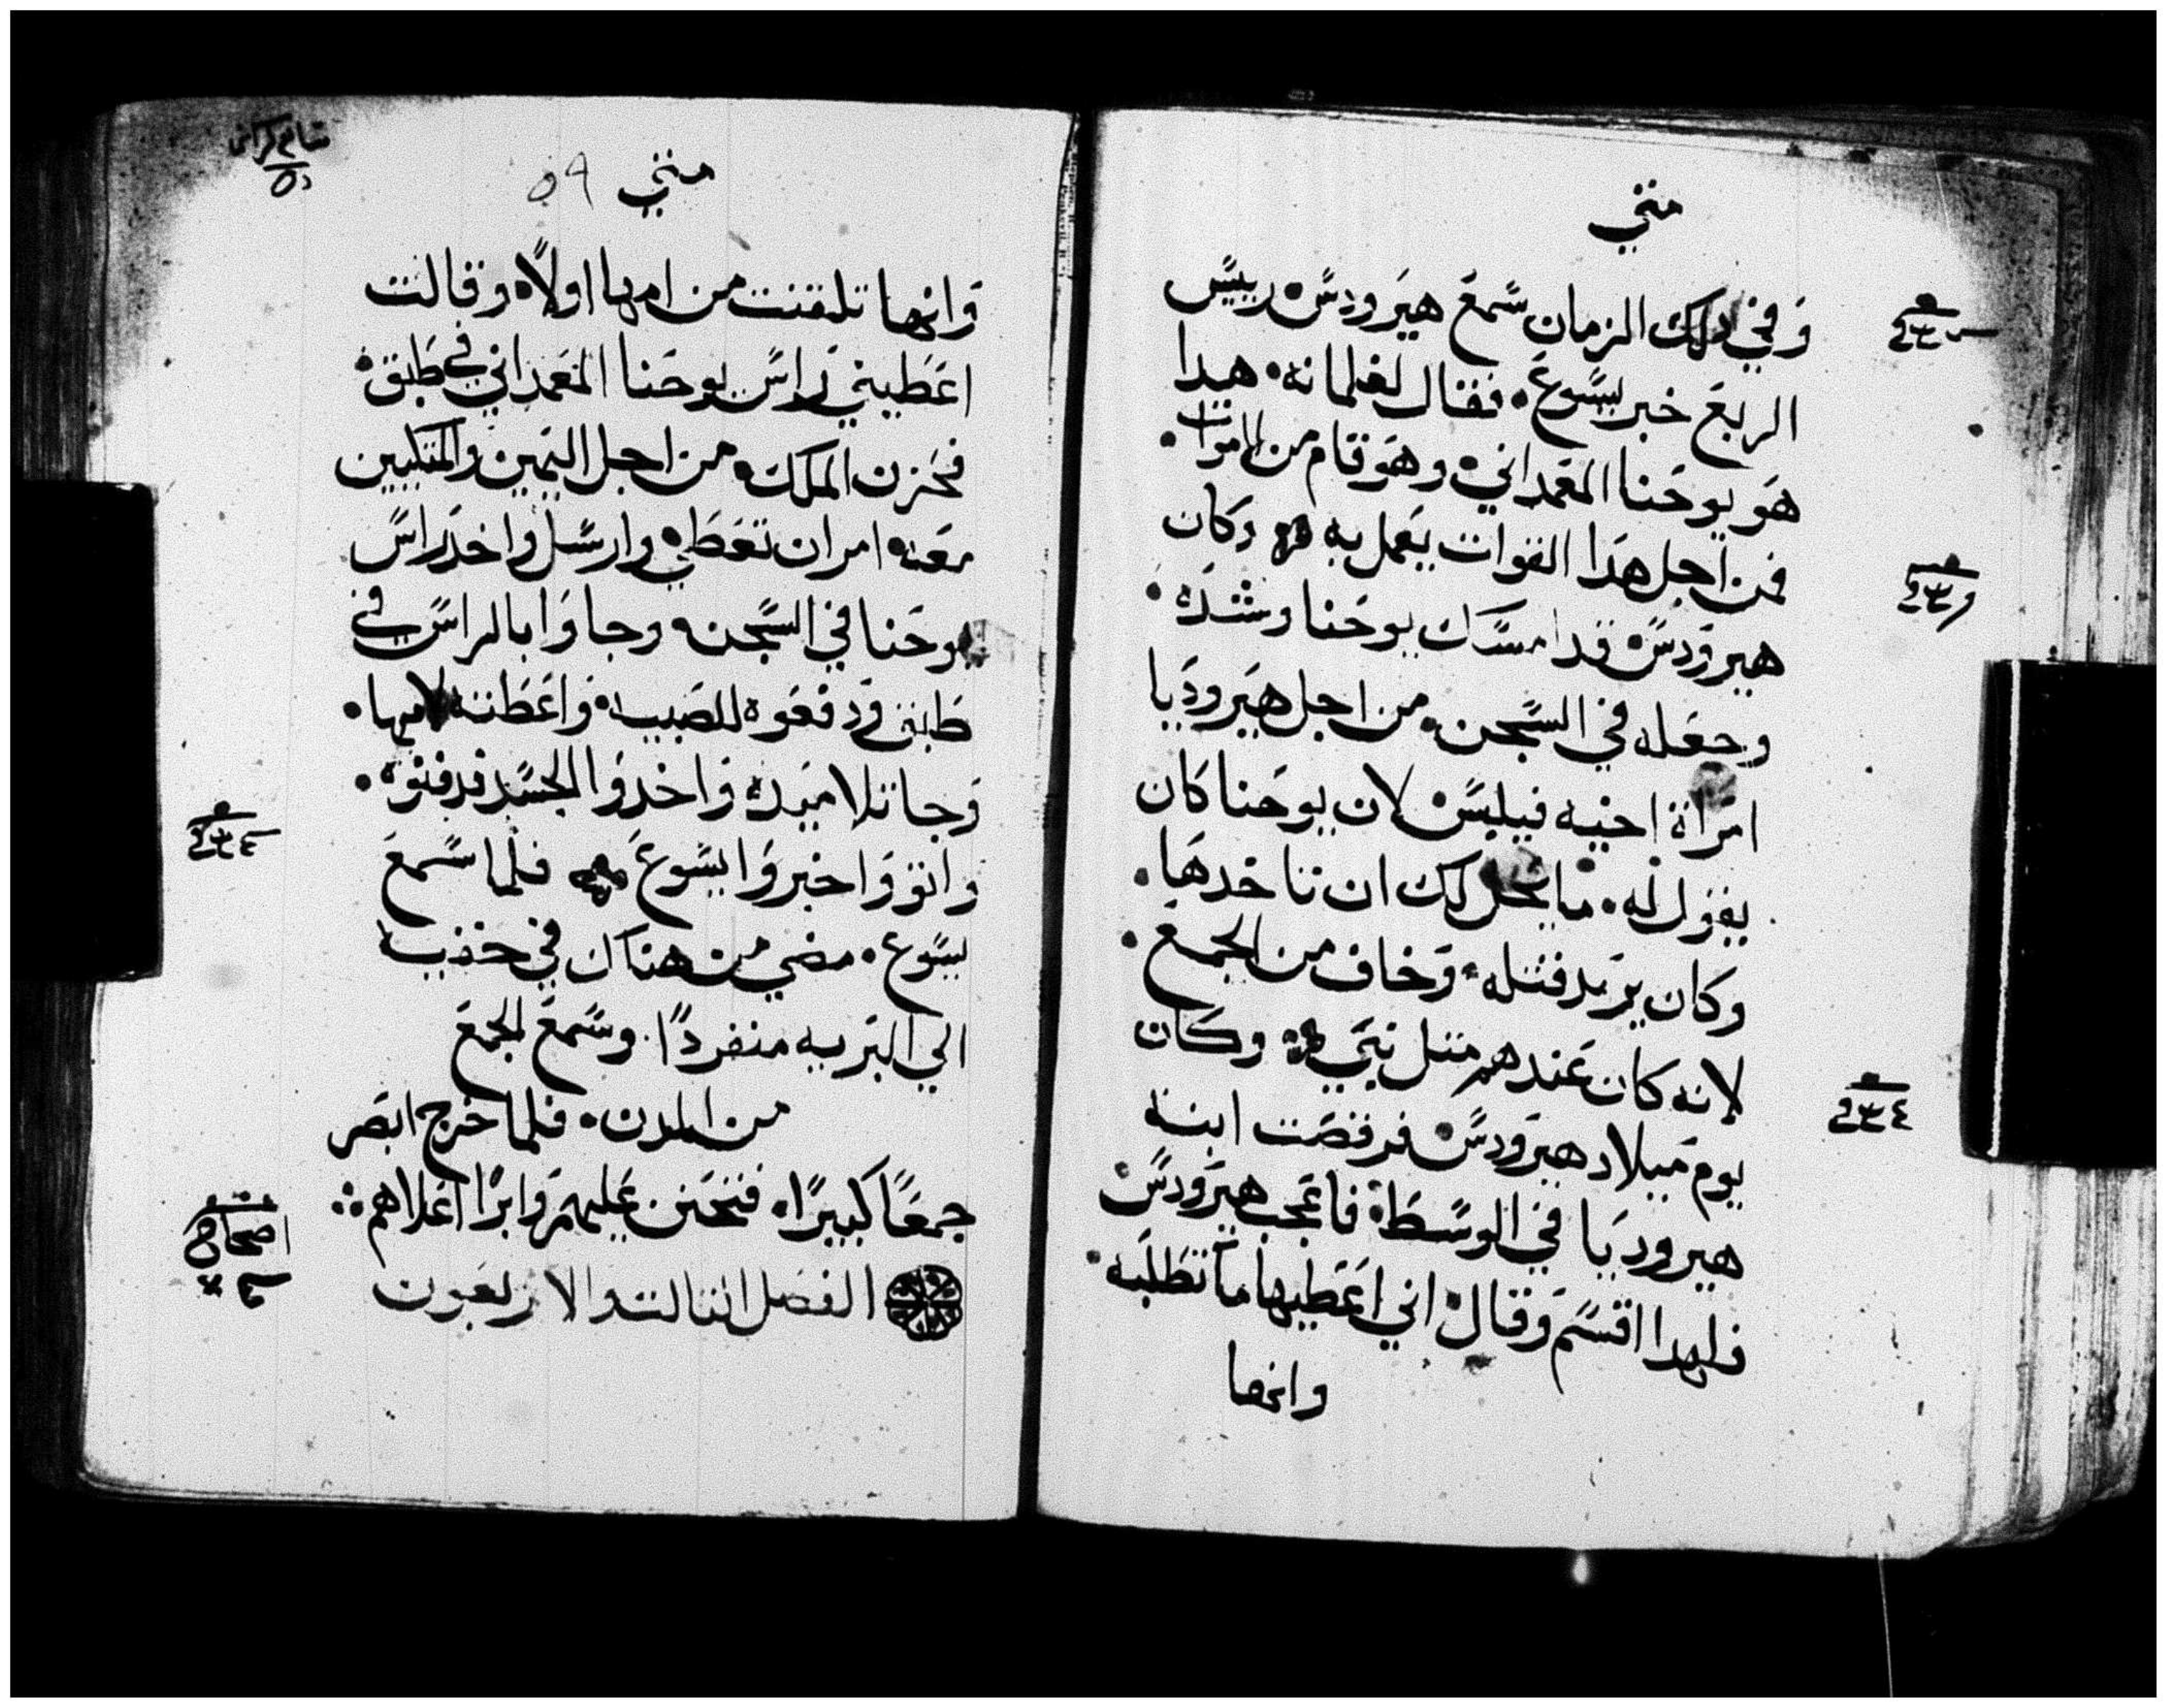 متي
وفي دلك الزمان سمع هيرودس رييس
الربع خبر يسوع • فقال لغلمانه • هدا
هو يوحنا المعمداني • وهو قام من الاموات •
فمن اجل هدا القوات يعمل به وكان
هيرودس قد امسك يوحنا وشده •
وجعله في السجن • من اجل هيروديا
امراة اخيه فيلبس • لان يوحنا كان
يقول له • ما يحل لك ان تاخدها •
وكان يريد قتله • وخاف من الجمع •
لانه كان عندهم مثل نبي وكان
يوم ميلاد هيرودس • فرقصت ابنة
هيروديا في الوسط • فاعجب هيرودس
فلهدا اقسم وقال • اني اعطيها ما تطلبه •
وانها
متي ٥٩
وانها تلقنت من امها اولاً • وقالت
اعطيني راس يوحنا المعمداني في طبق •
فحزن الملك • من اجل اليمين والمتكيين
معه • امر ان تعطي • وارسل واخد راس
يوحنا في السجن • وجاوا بالراس في
طبق ودفعوه للصبيه • واعطته لامها •
وجا تلاميده واخدوا الجسد فدفنوه •
واتوا واخبروا يسوع فلما سمع
يسوع • مضي من هناك في خفيه
الي البريه منفردًا • وسمع الجمع
من المدن • فلما خرج ابصر
جمعًا كبيرًا • فتحنن عليهم وابرا اعلاهم ∴
الفصل التالت والاربعون
اصحاح